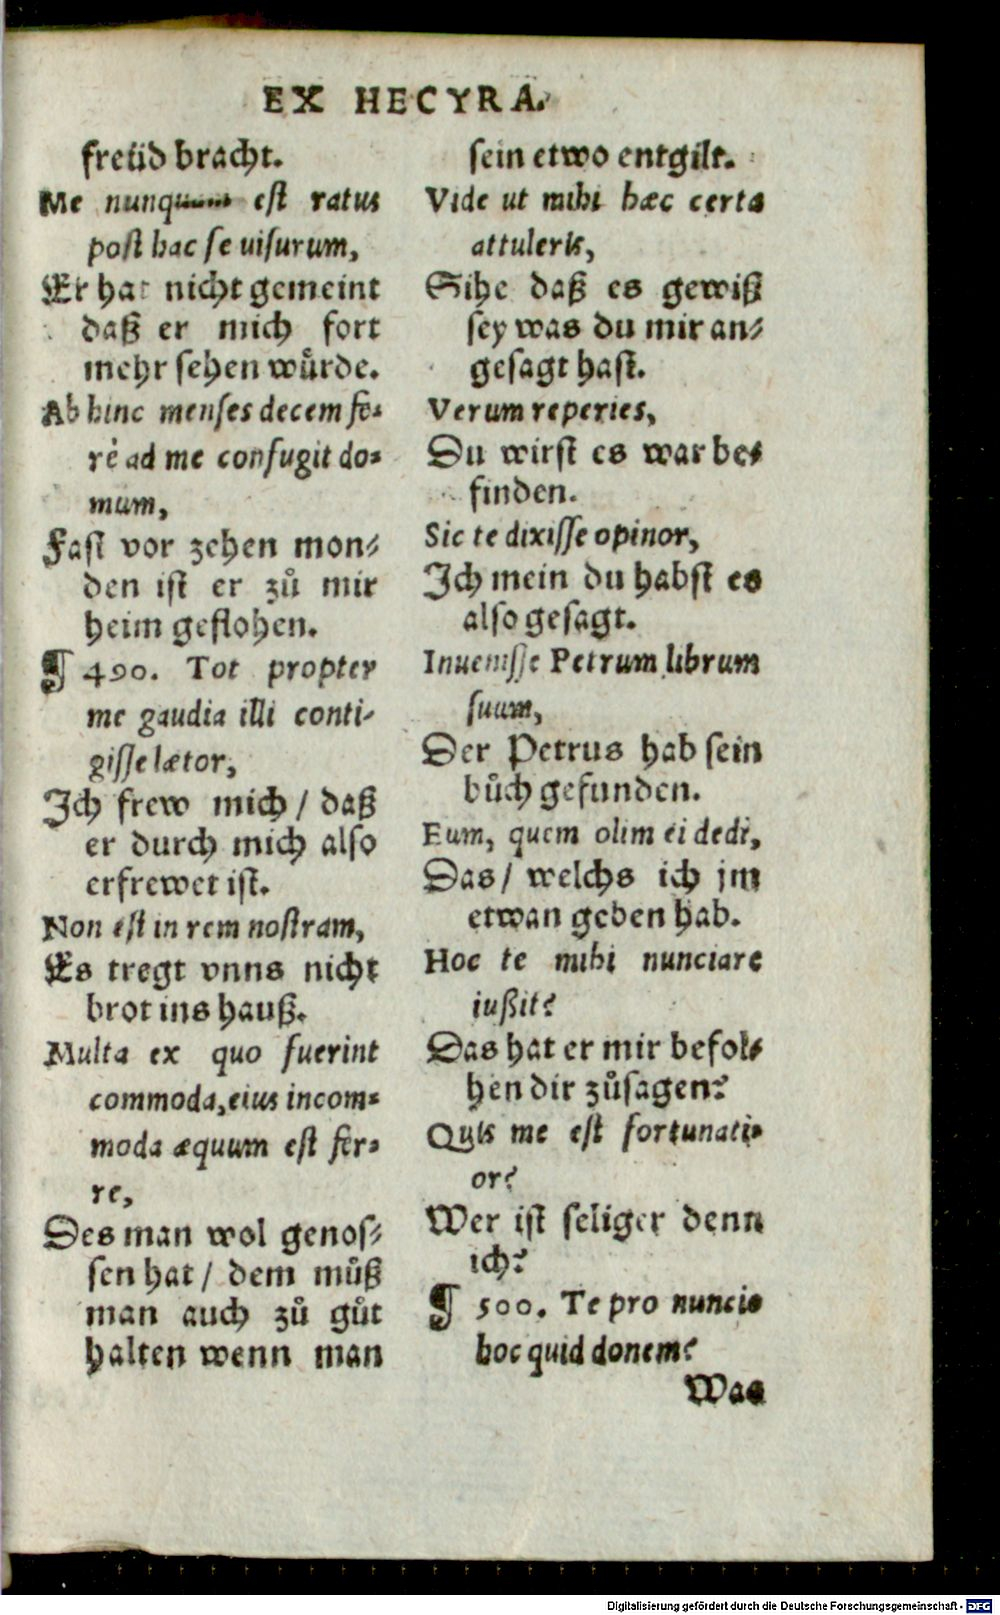 EX HECYRA.
freüd bracht.
Me nunquam est ratus
post hac se uisurum,
Er hat nicht gemeint
daß er mich fort
mehr sehen wuͤrde.
Ab hinc menses decem fe-
rè ad me confugit do-
mum,
Fast vor zehen mon-
den ist er zuͦ mir
heim geflohen.
¶ 490. Tot propter
me gaudia illi conti-
gisse lætor,
Ich frew mich / daß
er durch mich also
erfrewet ist.
Non est in rem nostram,
Es tregt vnns nicht
brot ins hauß.
Multa ex quo fuerint
commoda, eius incom-
moda æquum est fer-
re,
Des man wol genos-
sen hat / dem muͦß
man auch zuͦ guͦt
halten wenn man
sein etwo entgilt.
Vide ut mihi hæc certa
attuleris,
Sihe daß es gewiß
sey was du mir an-
gesagt hast.
Verum reperies,
Du wirst es war be-
finden.
Sic te dixisse opinor,
Ich mein du habst es
also gesagt.
Inuenisse Petrum librum
suum,
Der Petrus hab sein
buͦch gefunden.
Eum, quem olim ei dedi,
Das / welchs ich jm
etwan geben hab.
Hoc te mihi nunciare
iußit?
Das hat er mir befol-
hen dir zuͦsagen?
Quis me est fortunati-
or?
Wer ist seliger denn
ich?
¶ 500. Te pro nuncio
hoc quid donem?
Was
Digitalisierung gefördert durch die Deutsche Forschungsgemeinschaft - DFG